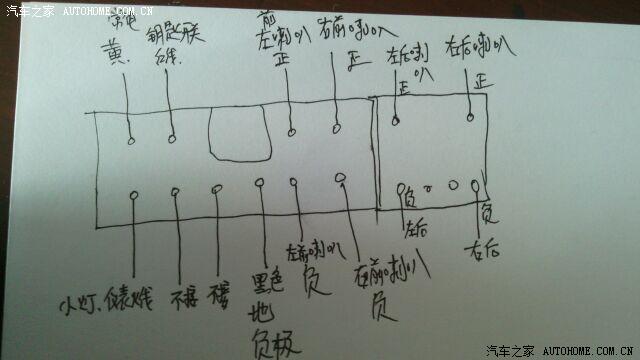 汽车之家 AUTOHOME.COM.CN
常电
黄
钥匙联
红线
前
左喇叭
正
右前喇叭
正
左后喇
叭
正
右后喇叭
正
负
左后
负
右后
小灯、仪表火线
不接
不接
黑色
地
负极
左前喇叭
负
右前喇叭
负
汽车之家 AUTOHOME.COM.CN